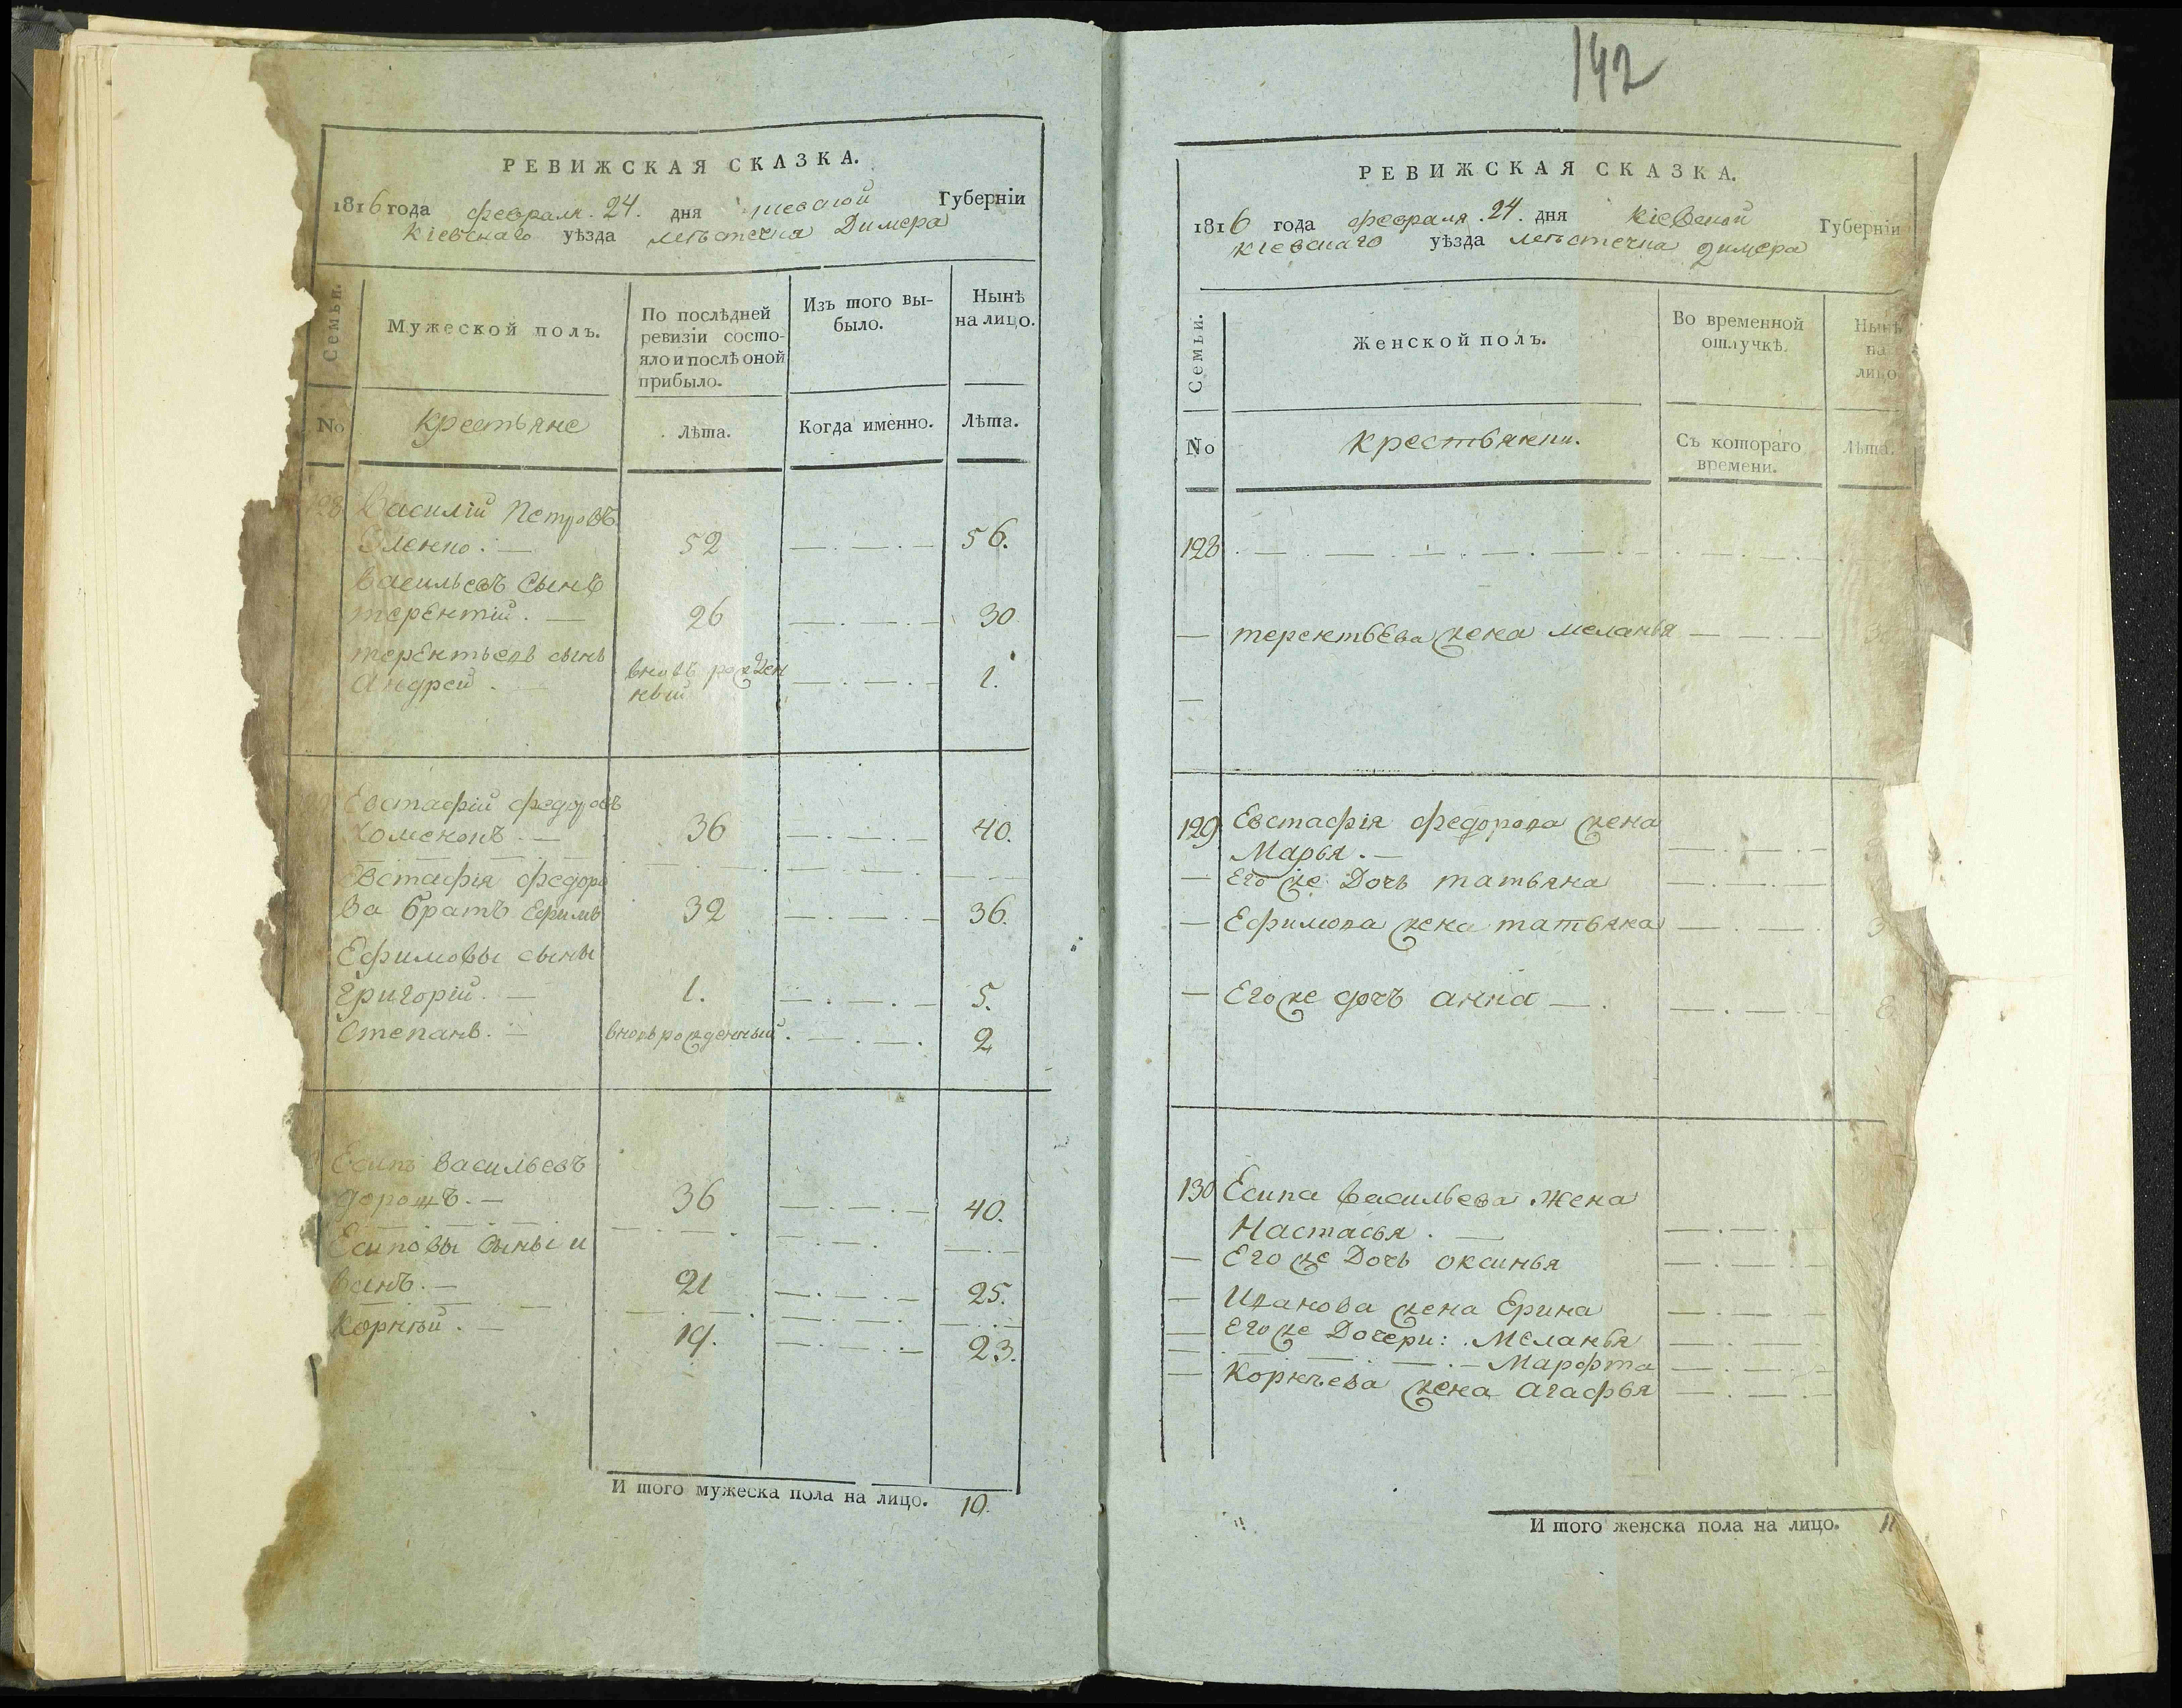 142
РЕВИЖСКАЯ СКАЗКА.
1816 года февраля. 24. дня Губерніи
Кіевскаго уѣзда мѣстечка Димера
Семьи.
Мужеской полъ.
По послѣдней
ревизіи состо-
яло и послѣ оной
прибыло.
Изъ того вы-
было.
Нынѣ
на лицо.
No
крестьяне
Лѣта.
Когда именно.
Лѣта.
128 Василій Петровъ
52 56.
Васильевъ сынъ
терентій. 26 30
терентьевъ сынъ вновь рожден
Андрей. ный 1.
Евстафій федоровъ
Хоменокъ 36 40.
Евстафія федоро
ва братъ Ефимъ 32 36.
Ефимовы сыны
Григорій. 1. 5.
Степанъ. вновь рожденный. 2
Есипъ васильевъ
36 40.
Есиповы сыны и
ванъ. 21 25.
Корнѣй. 19. 23.
И того мужеска пола на лицо. 10.
РЕВИЖСКАЯ СКАЗКА.
1816 года февраля. 24. дня Кіевской Губерніи
Кіевскаго уѣзда мѣстечка Димера
Семьи.
Женской полъ.
Во временной
отлучкѣ.
Нынѣ
на
лицо
No
крестьянки.
Съ котораго
времени.
Лѣта.
128
терентьева жена меланья 3
129 Евстафія федорова жена
Марья.
Его же Дочь татьяна
Ефимова жена татьяна 3
Его же дочь анна
130 Есипа васильева жена
Настасья.
Его же Дочь оксинья
Иванова жена Ерина
Его же Дочери: Меланья
Марфта
Корнѣева жена агафья
И того женска пола на лицо. 11